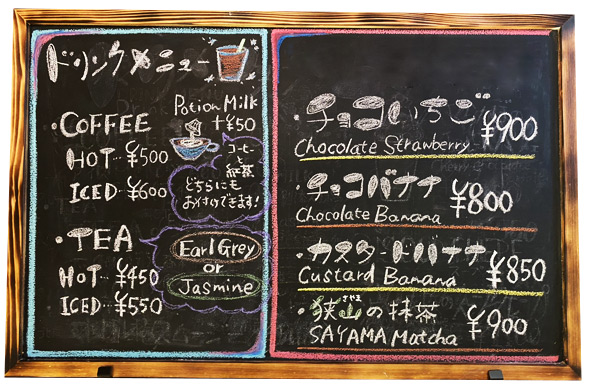 ドリンクメニュー
Potion Milk
+¥50
・COFFEE
HOT…¥500
ICED…¥600
コーヒー
と
紅茶
どちらにも
お付けできます!
・TEA
HOT…¥450
ICED…¥550
Earl Grey
or
Jasmine
・チョコいちご ¥900
Chocolate Strawberry
・チョコバナナ ¥800
Chocolate Banana
・カスタードバナナ ¥850
Custard Banana
さやま
・狭山の抹茶 ¥900
SAYAMA Matcha